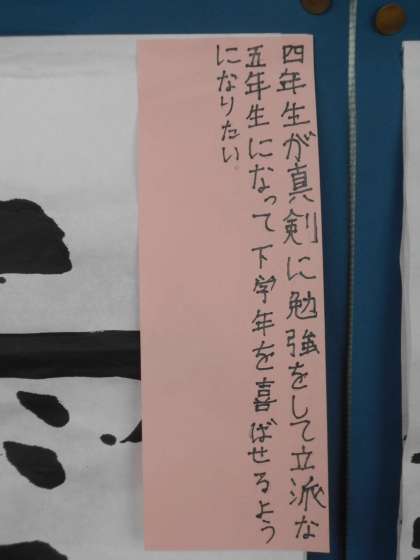 四年生が真剣に勉強をして立派な
五年生になって下学年を喜ばせるよう
になりたい。